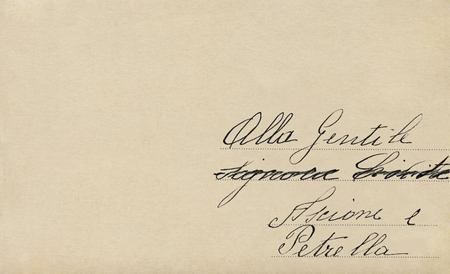 Alla Gentile
Signora
Ascione e
Petrella